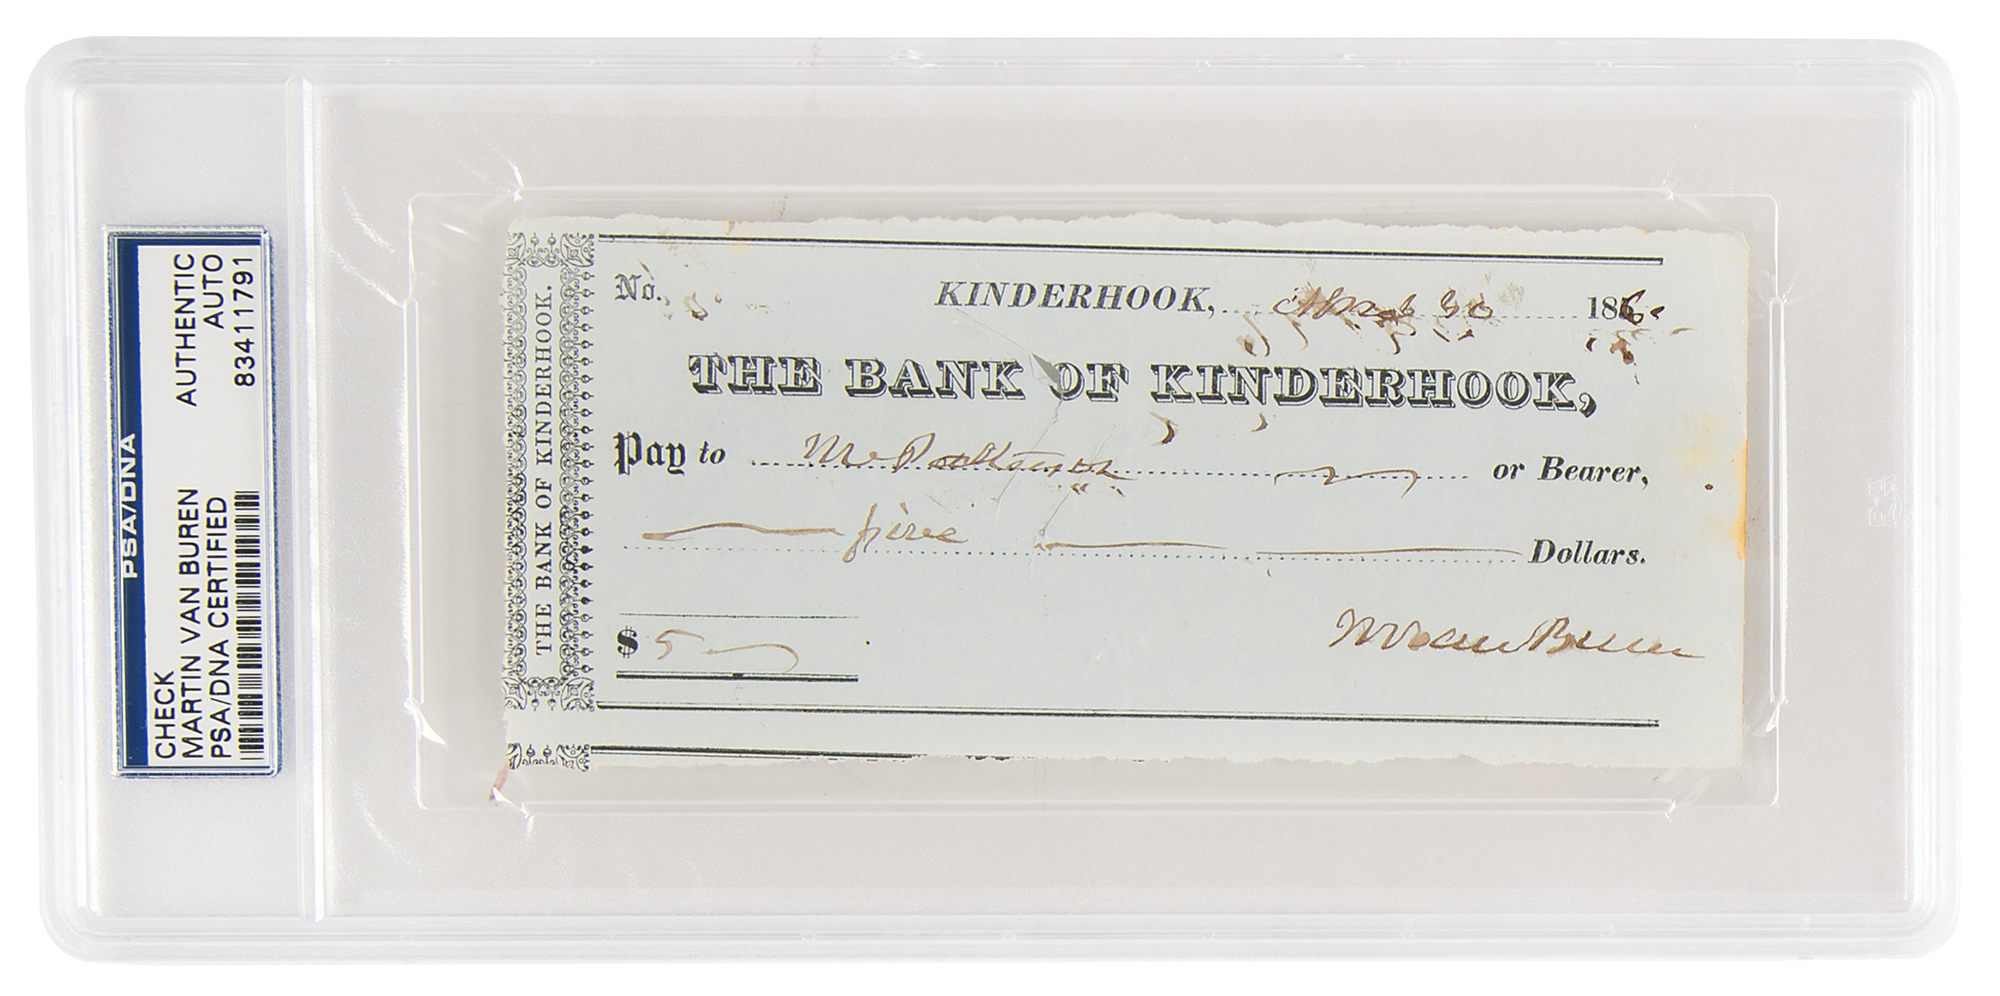 PSA/DNA
CHECK AUTHENTIC
MARTIN VAN BUREN AUTO
PSA/DNA CERTIFIED 83411791
THE BANK OF KINDERHOOK.
No. KINDERHOOK, 186
THE BANK OF KINDERHOOK,
Pay to Mr or Bearer,
five Dollars.
$ 5
MVan Buren